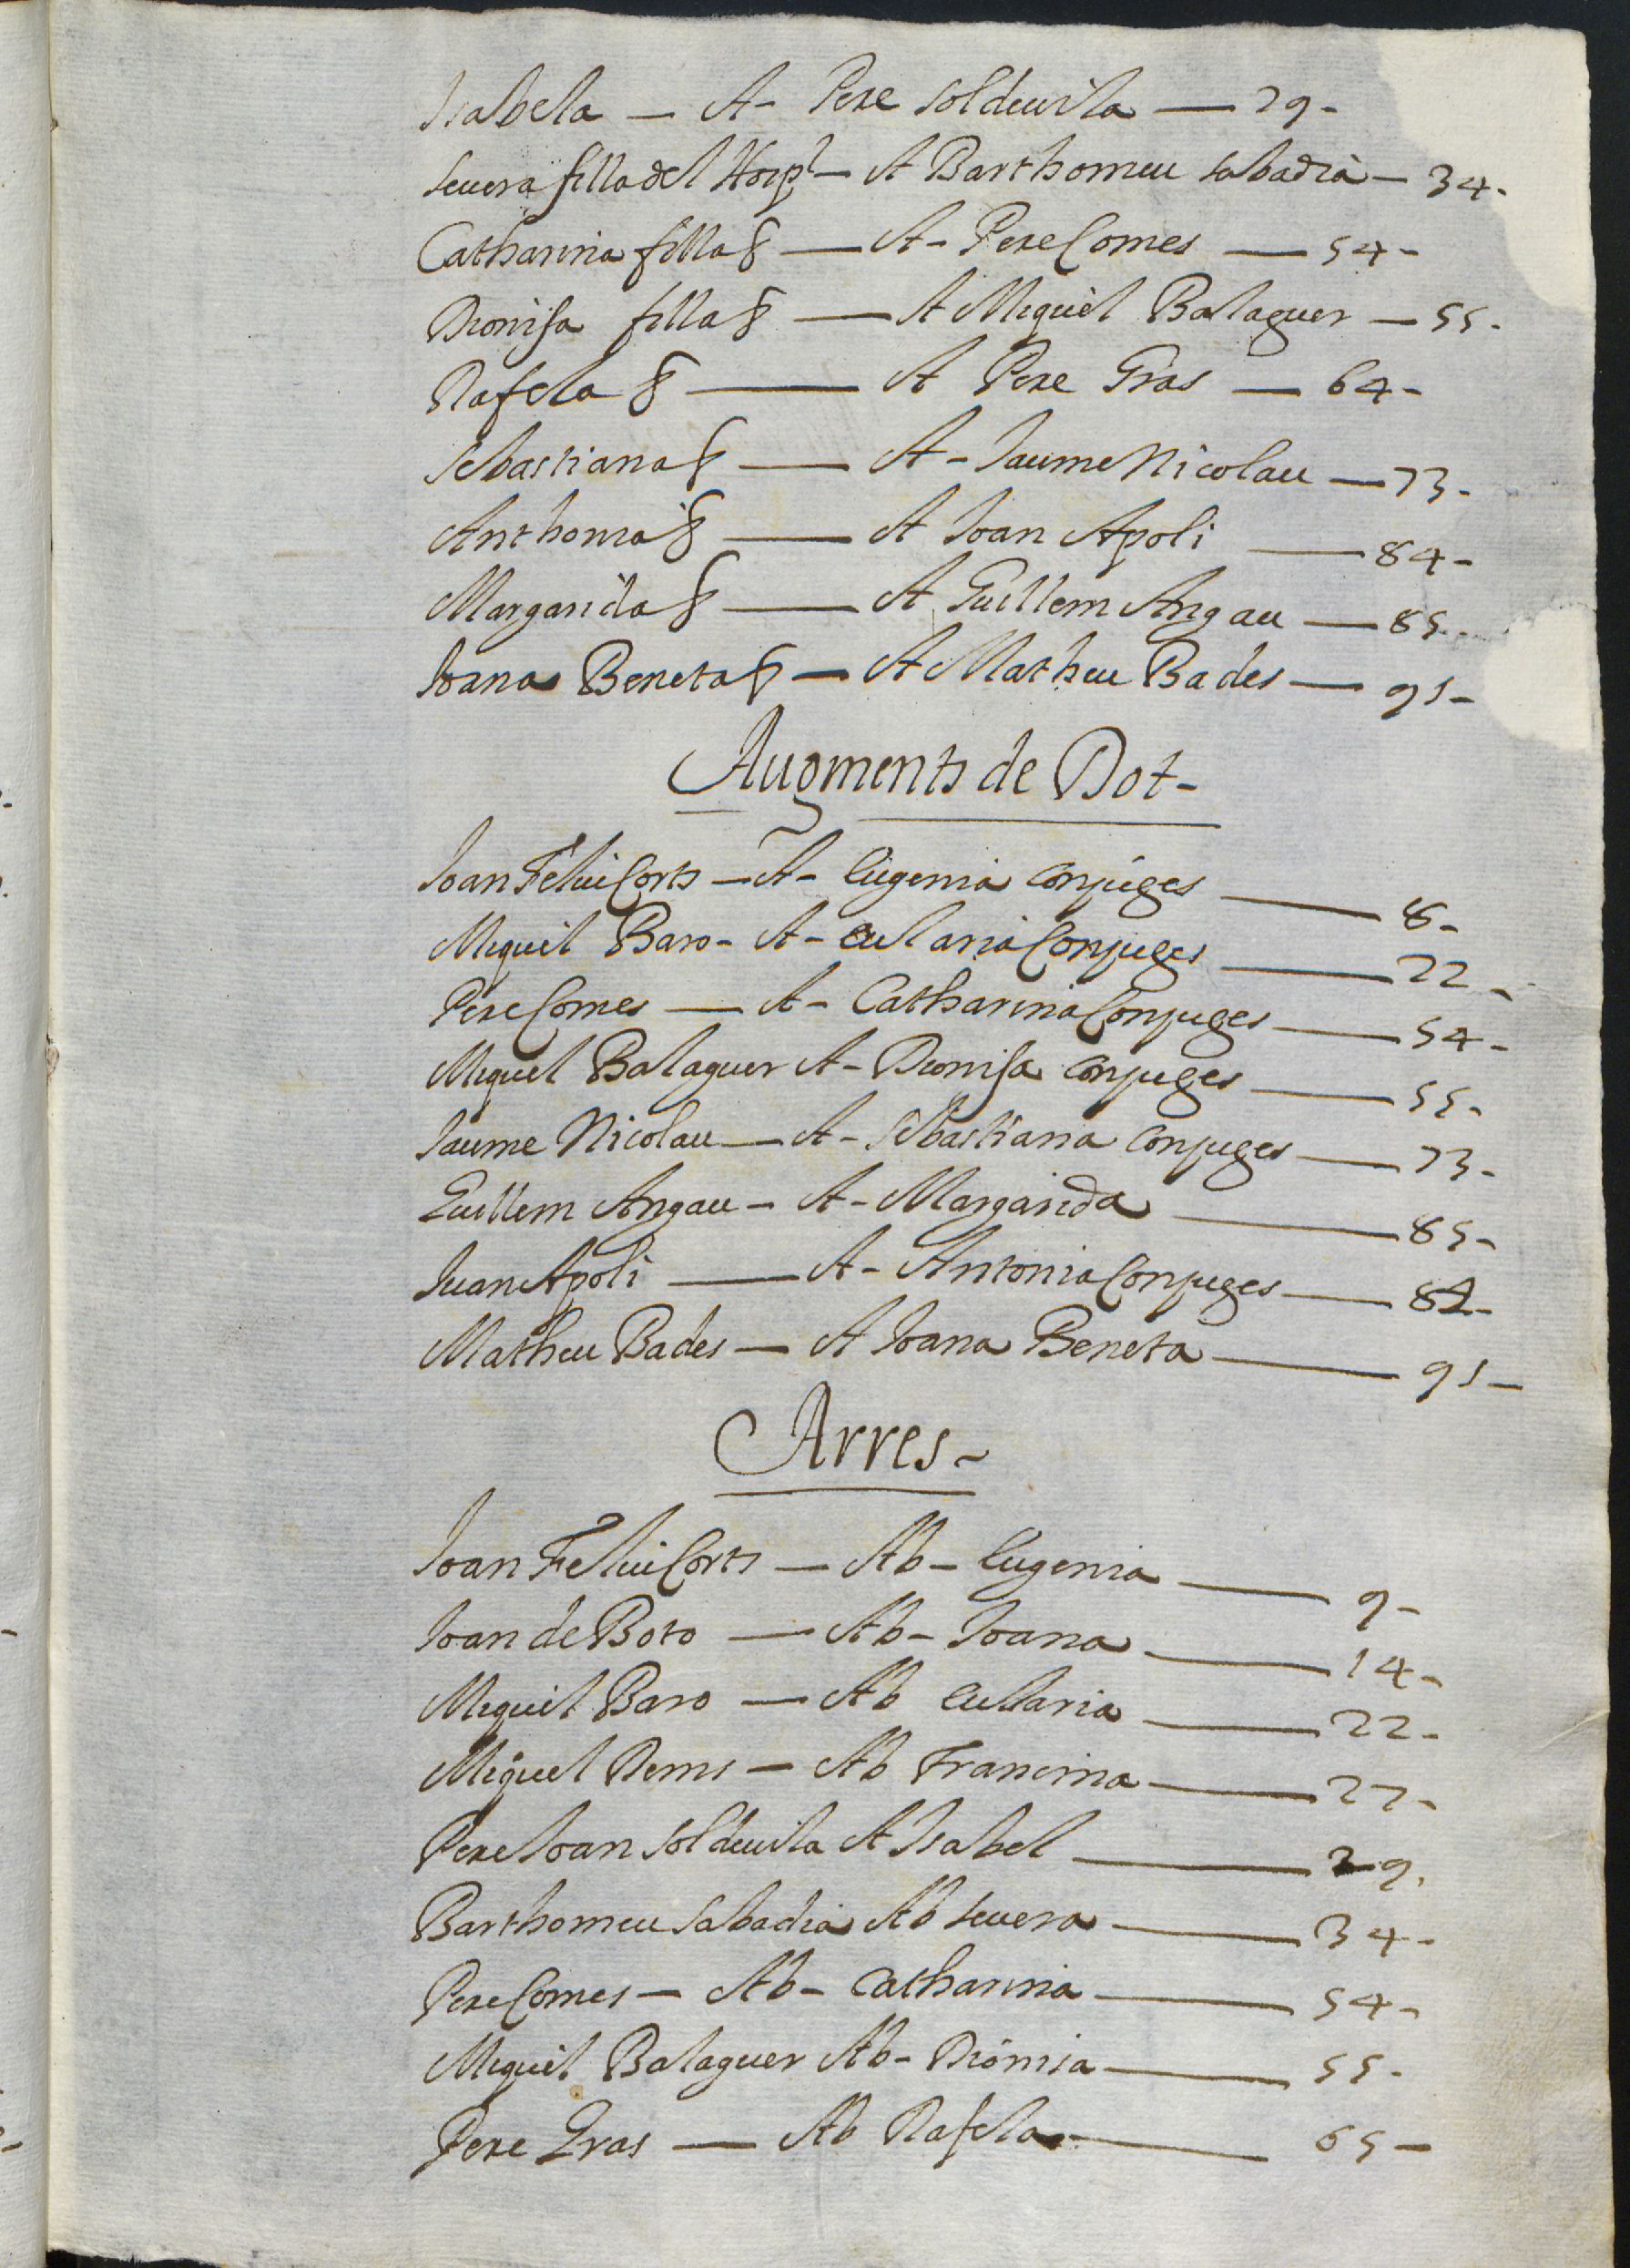 Isabela — A - Pere Soldeuila — 29 -
Seuera filla del Hospl - A Barthomeu Sabadia — 34 -
Catharina filla § — A - Pere Comes — 54 -
Dionisa filla § — A Miquel Balaguer — 55 -
Rafela § — A Pere Gras — 64 -
Sebastiana § — A - Jaume Nicolau — 73 -
Anthonia § — A Joan Apoli — 84 -
Margarida § — A Guillem Angau — 85 -
Joana Beneta § — A Matheu Bades — 91 -
Augments de Dot -
Joan Feliu Corts — A - Eugenia Conjuges — 8 -
Miquel Baro - A - Eularia Conjuges — 22 -
Pere Comes — A - Catharina Conjuges — 54 -
Miquel Balaguer A - Dionisa Conjuges — 55 -
Jaume Nicolau — A - Sebastiana Conjuges — 73 -
Guillem Angau - A - Margarida — 85 -
Juan Apoli — A - Antonia Conjuges — 84 -
Matheu Bades — A Joana Beneta — 91 -
Arres -
Joan Feliu Corts — Ab - Eugenia — 9 -
Joan de Boto — Ab - Joana — 14 -
Miquel Baro — Ab Eullaria — 22 -
Miquel Denis — Ab Francina — 27 -
Pere Joan Soldeuila A Isabel — 29 .
Barthomeu Sabadia Ab Seuera — 34 -
Pere Comes — Ab - Catharina — 54 -
Miquel Balaguer Ab - Dionisa — 55 -
Pere Gras — Ab Rafela — 65 -